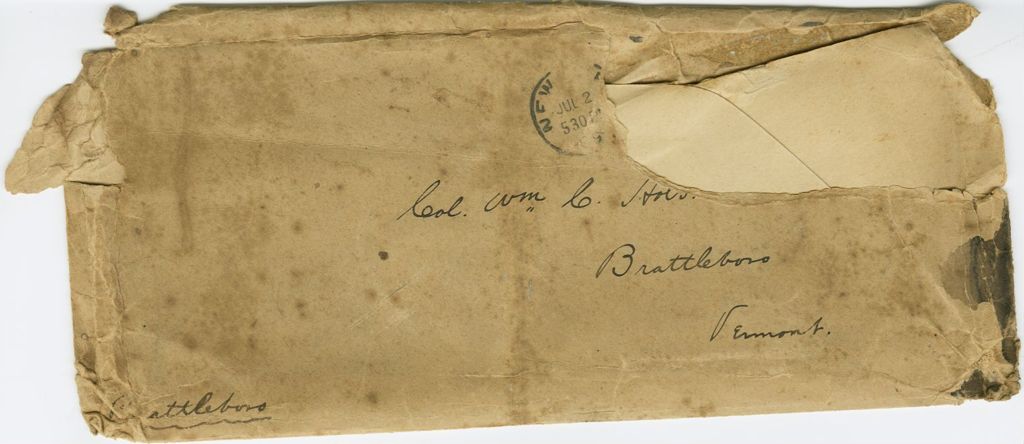 NEW
JUL 2
5 30 P
Col. Wm C. Holt.
Brattleboro
Vermont.
Brattleboro